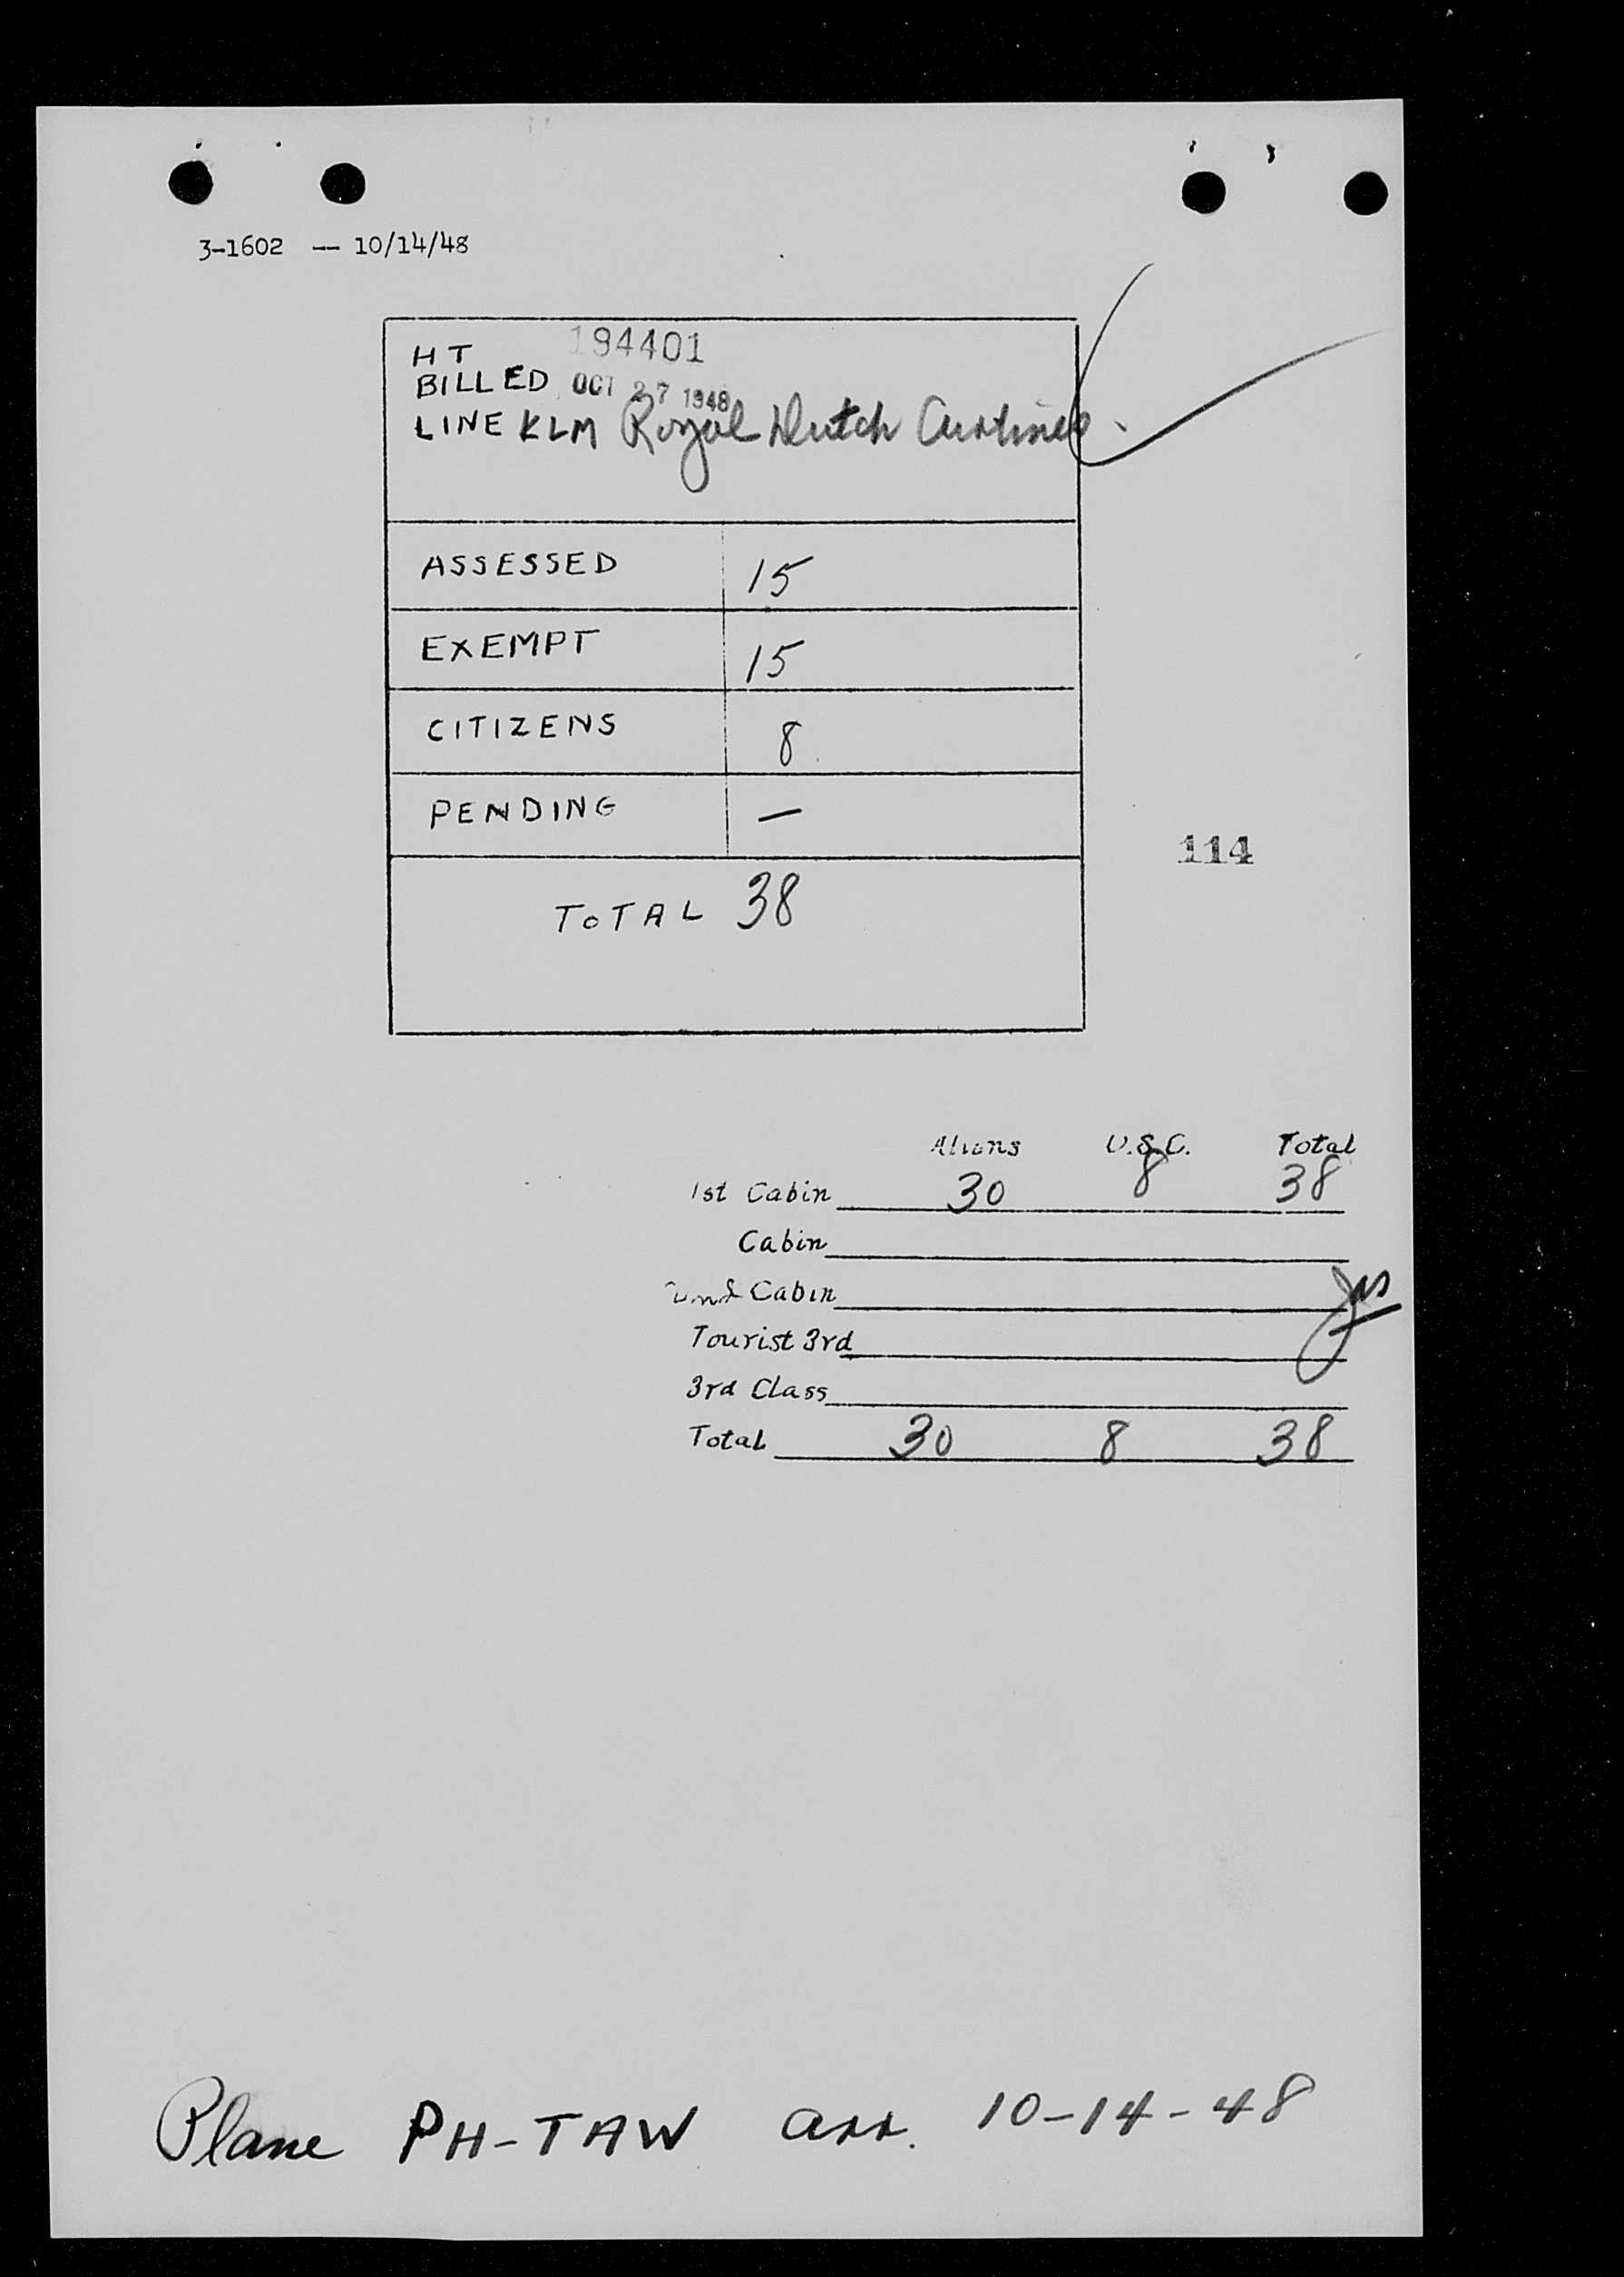 3-1602 -- 10/14/48
HT 194401
BILLED OCT 27 1948
LINE KLM Royal Dutch Airlines.
ASSESSED 15
EXEMPT 15
CITIZENS 8
PENDING —
114
TOTAL 38
Aliens U.S.C. Total
1st Cabin 30 8 38
Cabin
2nd Cabin
Tourist 3rd
3rd Class
Total 30 8 38
Plane PH-TAW arr. 10-14-48